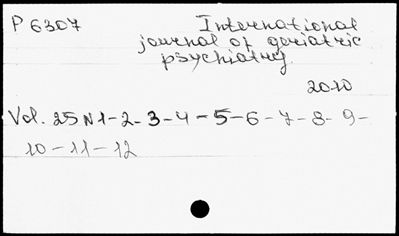 P 6307 International
journal of geriatric
psychiatry.
2010
Vol. 25 N 1-2-3-4-5-6-7-8-9-
10-11-12